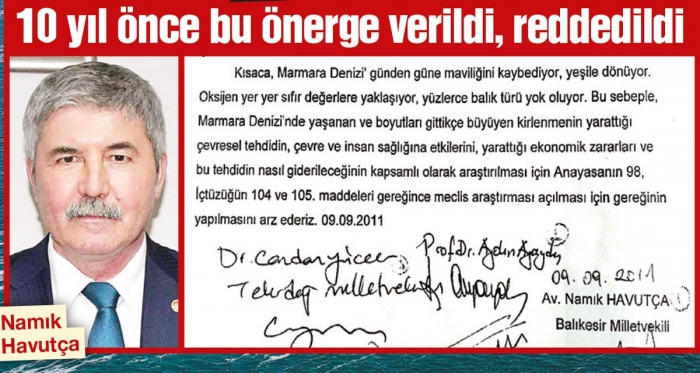 10 yıl önce bu önerge verildi, reddedildi
Kısaca, Marmara Denizi' günden güne maviliğini kaybediyor, yeşile dönüyor.
Oksijen yer yer sıfır değerlere yaklaşıyor, yüzlerce balık türü yok oluyor. Bu sebeple,
Marmara Denizi'nde yaşanan ve boyutları gittikçe büyüyen kirlenmenin yarattığı
çevresel tehdidin, çevre ve insan sağlığına etkilerini, yarattığı ekonomik zararları ve
bu tehdidin nasıl giderileceğinin kapsamlı olarak araştırılması için Anayasanın 98,
İçtüzüğün 104 ve 105. maddeleri gereğince meclis araştırması açılması için gereğinin
yapılmasını arz ederiz. 09.09.2011
Dr. Candan Yüceer Prof. Dr. Aydın Ayaydın
Tekirdağ Milletvekili
09.09.2011
Av. Namık HAVUTÇA
Balıkesir Milletvekili
Namık
Havutça